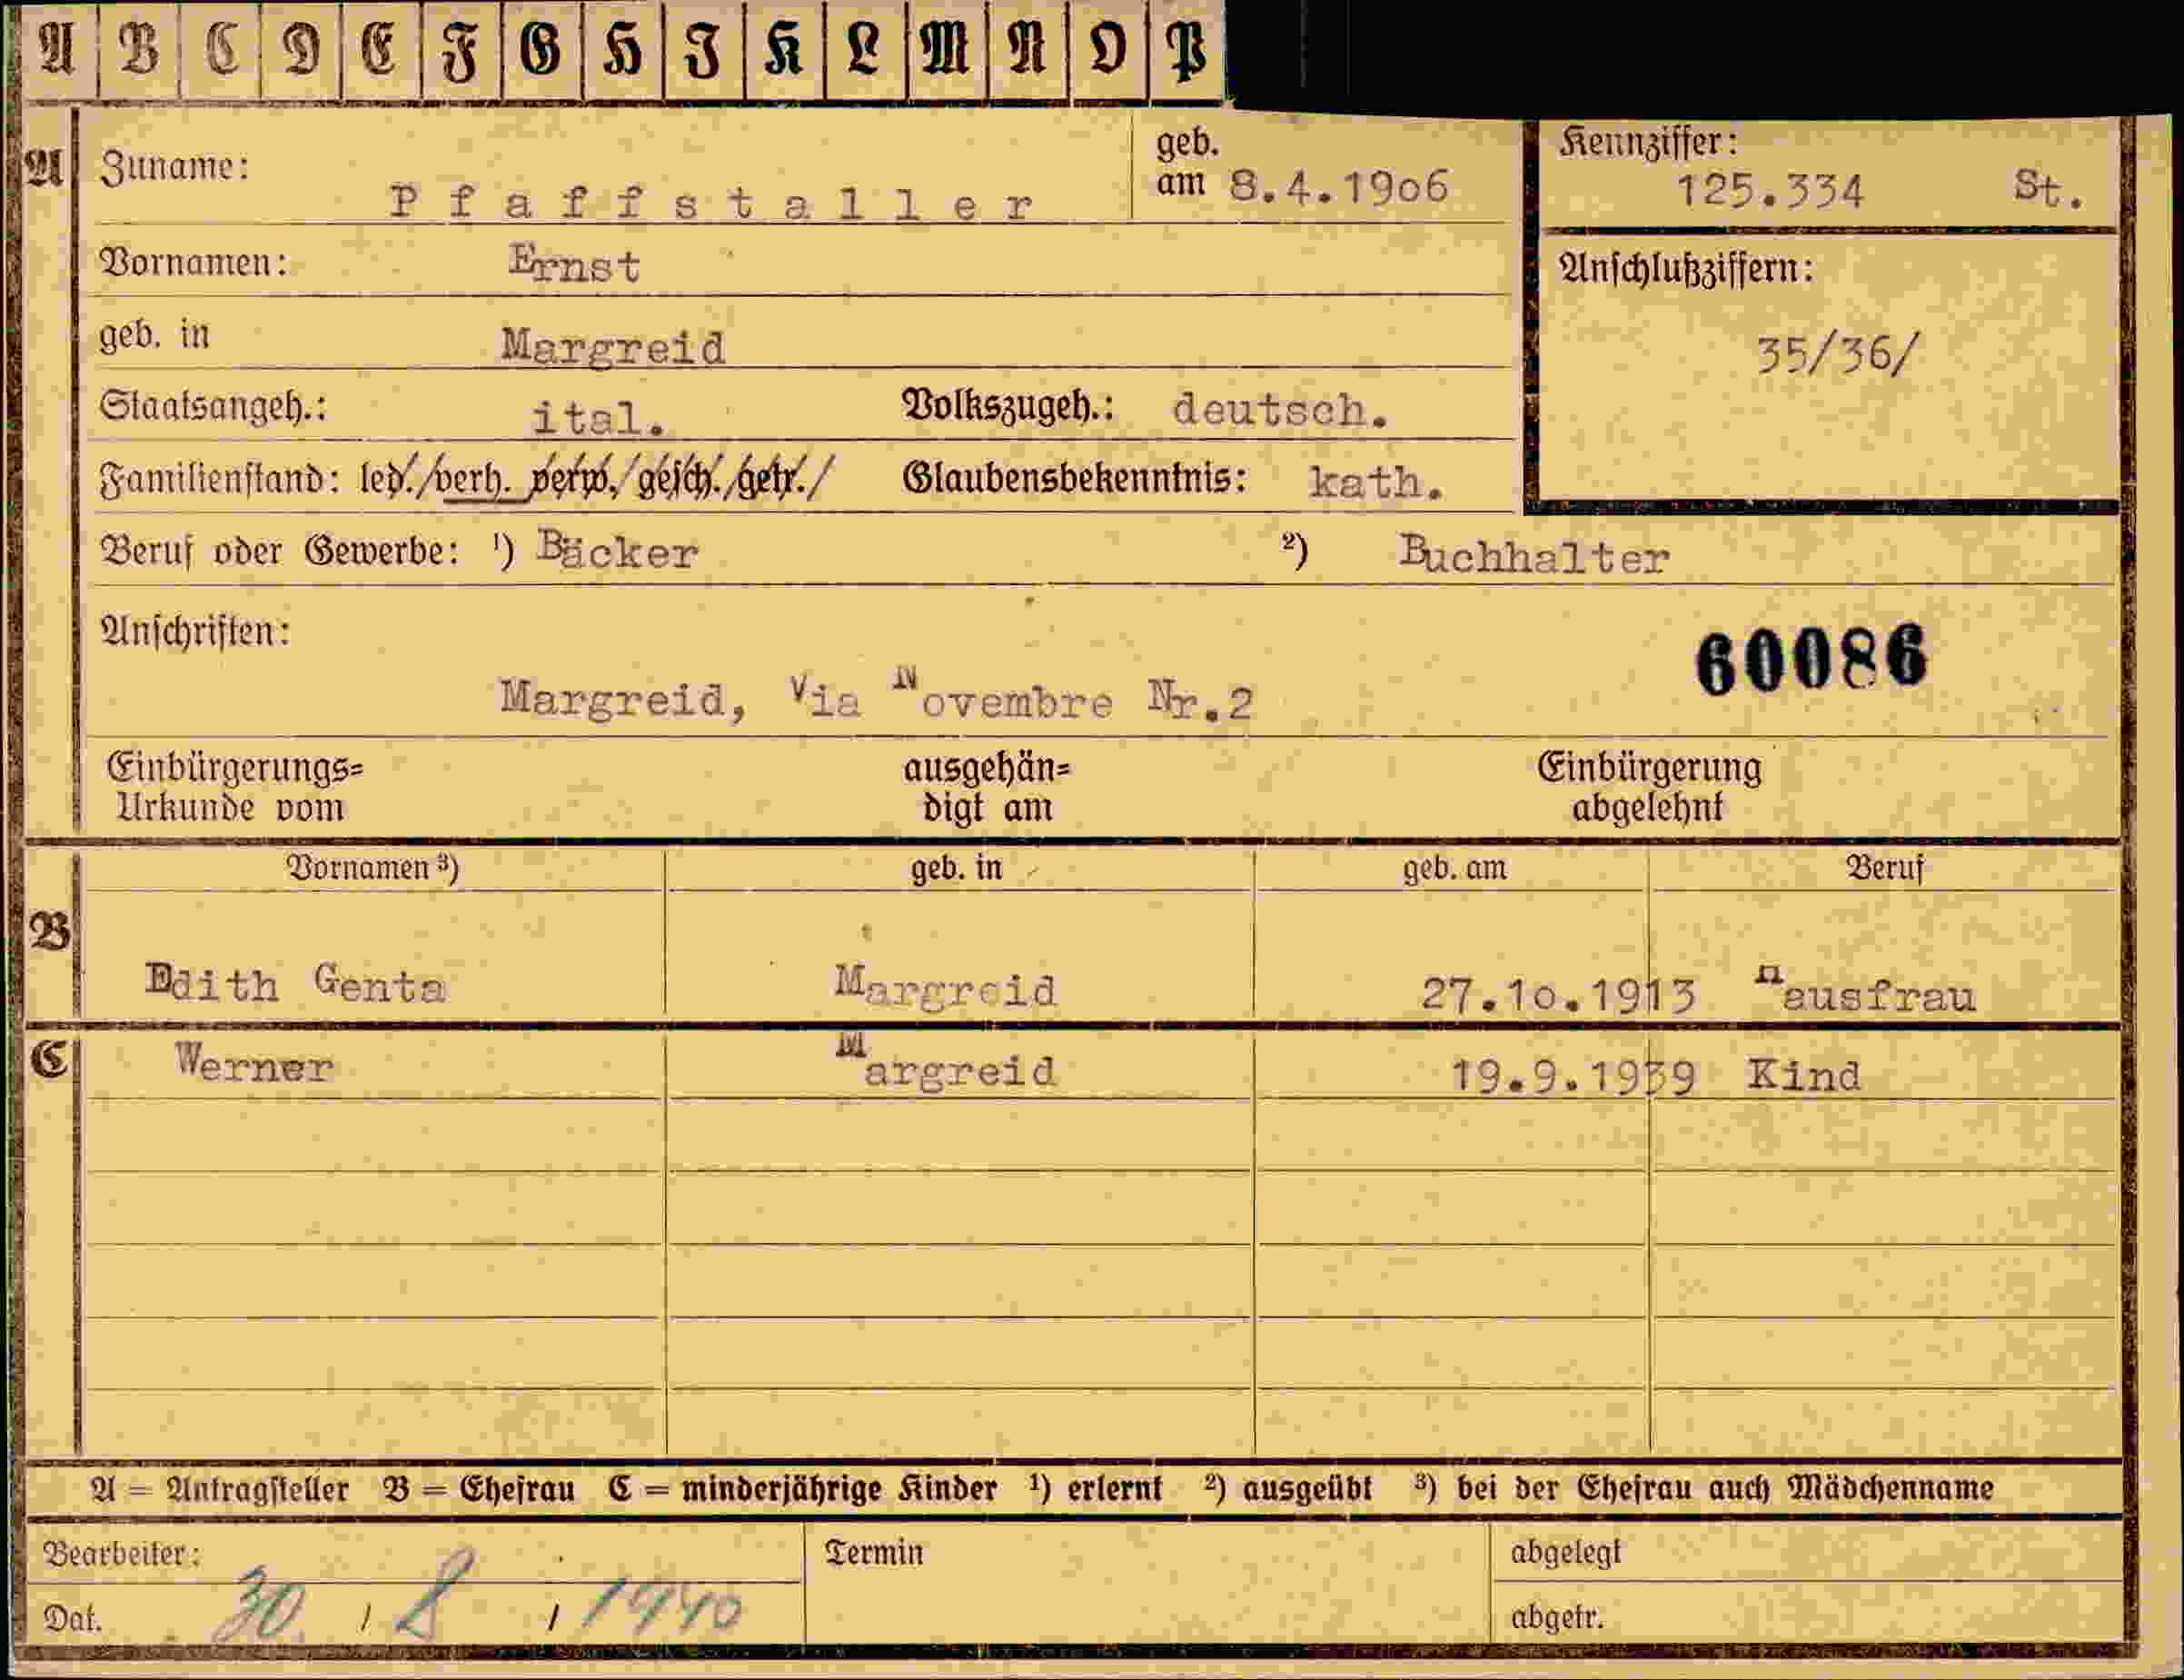 A B C D E F G H I K L M N O P
A Zuname: Pfaffstaller geb. am 8.4.1906 Kennziffer: 125.334 St.
Vornamen: Ernst Anschlußziffern:
geb. in Margreid 35/36/
Staatsangeh.: ital. Volkszugeh.: deutsch.
Familienstand: led./verh. verw./gesch./getr./ Glaubensbekenntnis: kath.
Beruf oder Gewerbe: ¹) Bäcker ²) Buchhalter
Anschriften: 60086
Margreid, Via Novembre Nr.2
Einbürgerungs= ausgehän= Einbürgerung
Urkunde vom digt am abgelehnt
Vornamen ³) geb. in geb. am Beruf
B
Edith Genta Margreid 27.10.1913 Hausfrau
C Werner Margreid 19.9.1939 Kind
A = Antragsteller B = Ehefrau C = minderjährige Kinder ¹) erlernt ²) ausgeübt ³) bei der Ehefrau auch Mädchenname
Bearbeiter: Termin abgelegt
Dat. 30. / 8 / 1940 abgetr.